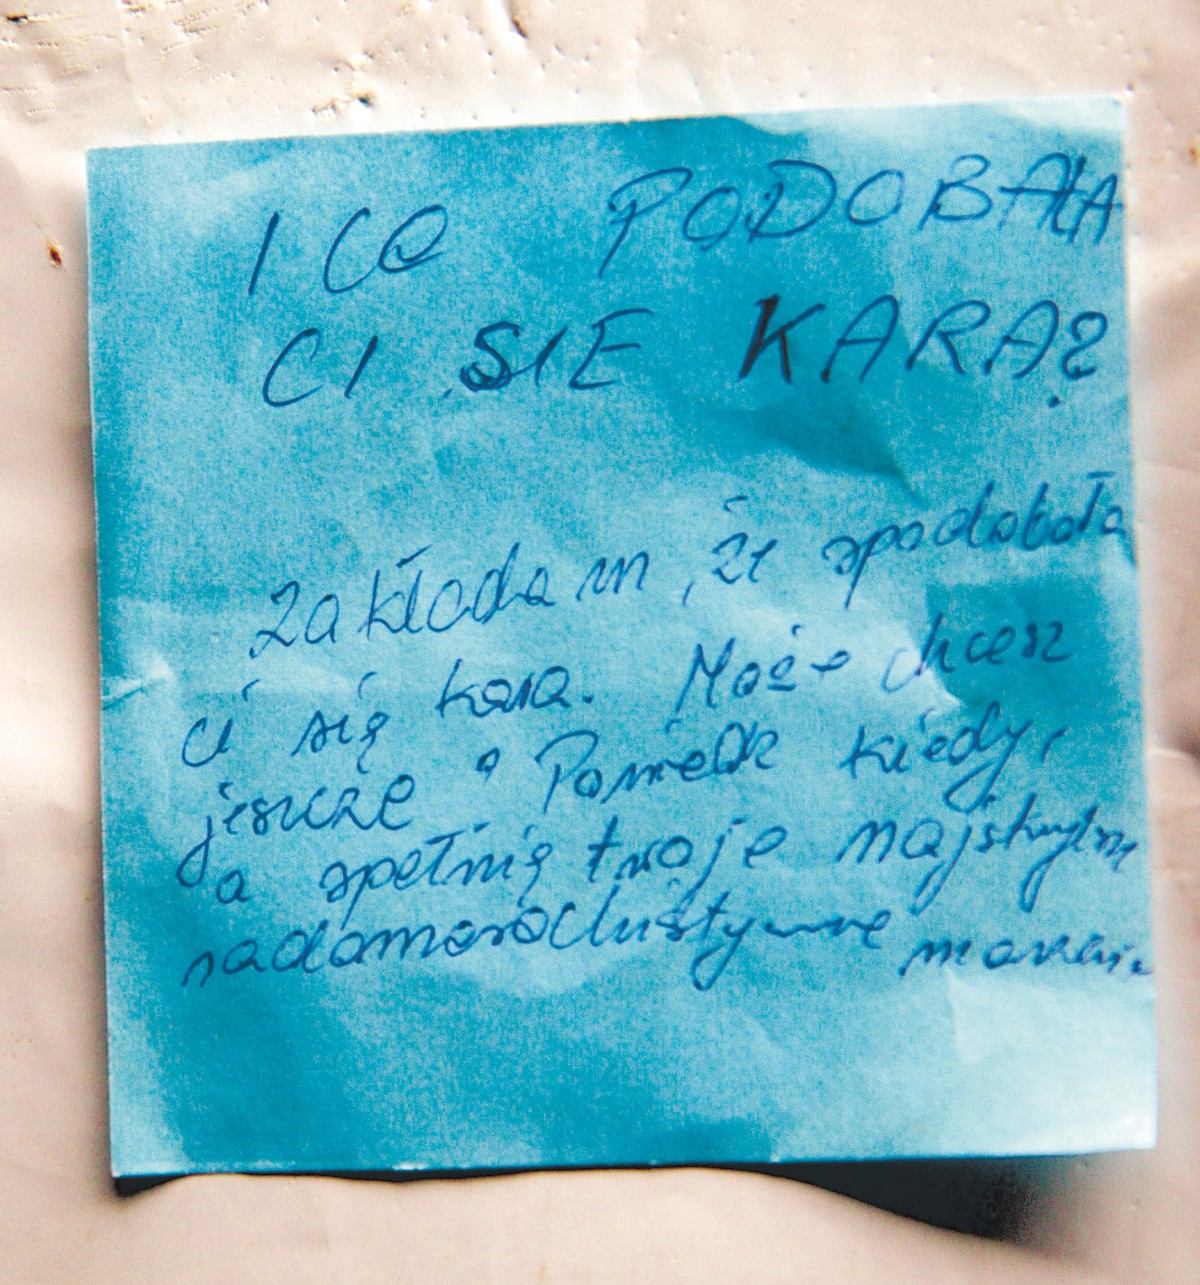 I CO PODOBAŁA
CI SIE KARA?
Zakładam, że spodobała
ci się kara. Może chcesz
jeszcze? Powiedz kiedy,
a spełnię twoje najskrytsze
sadomasochistyczne